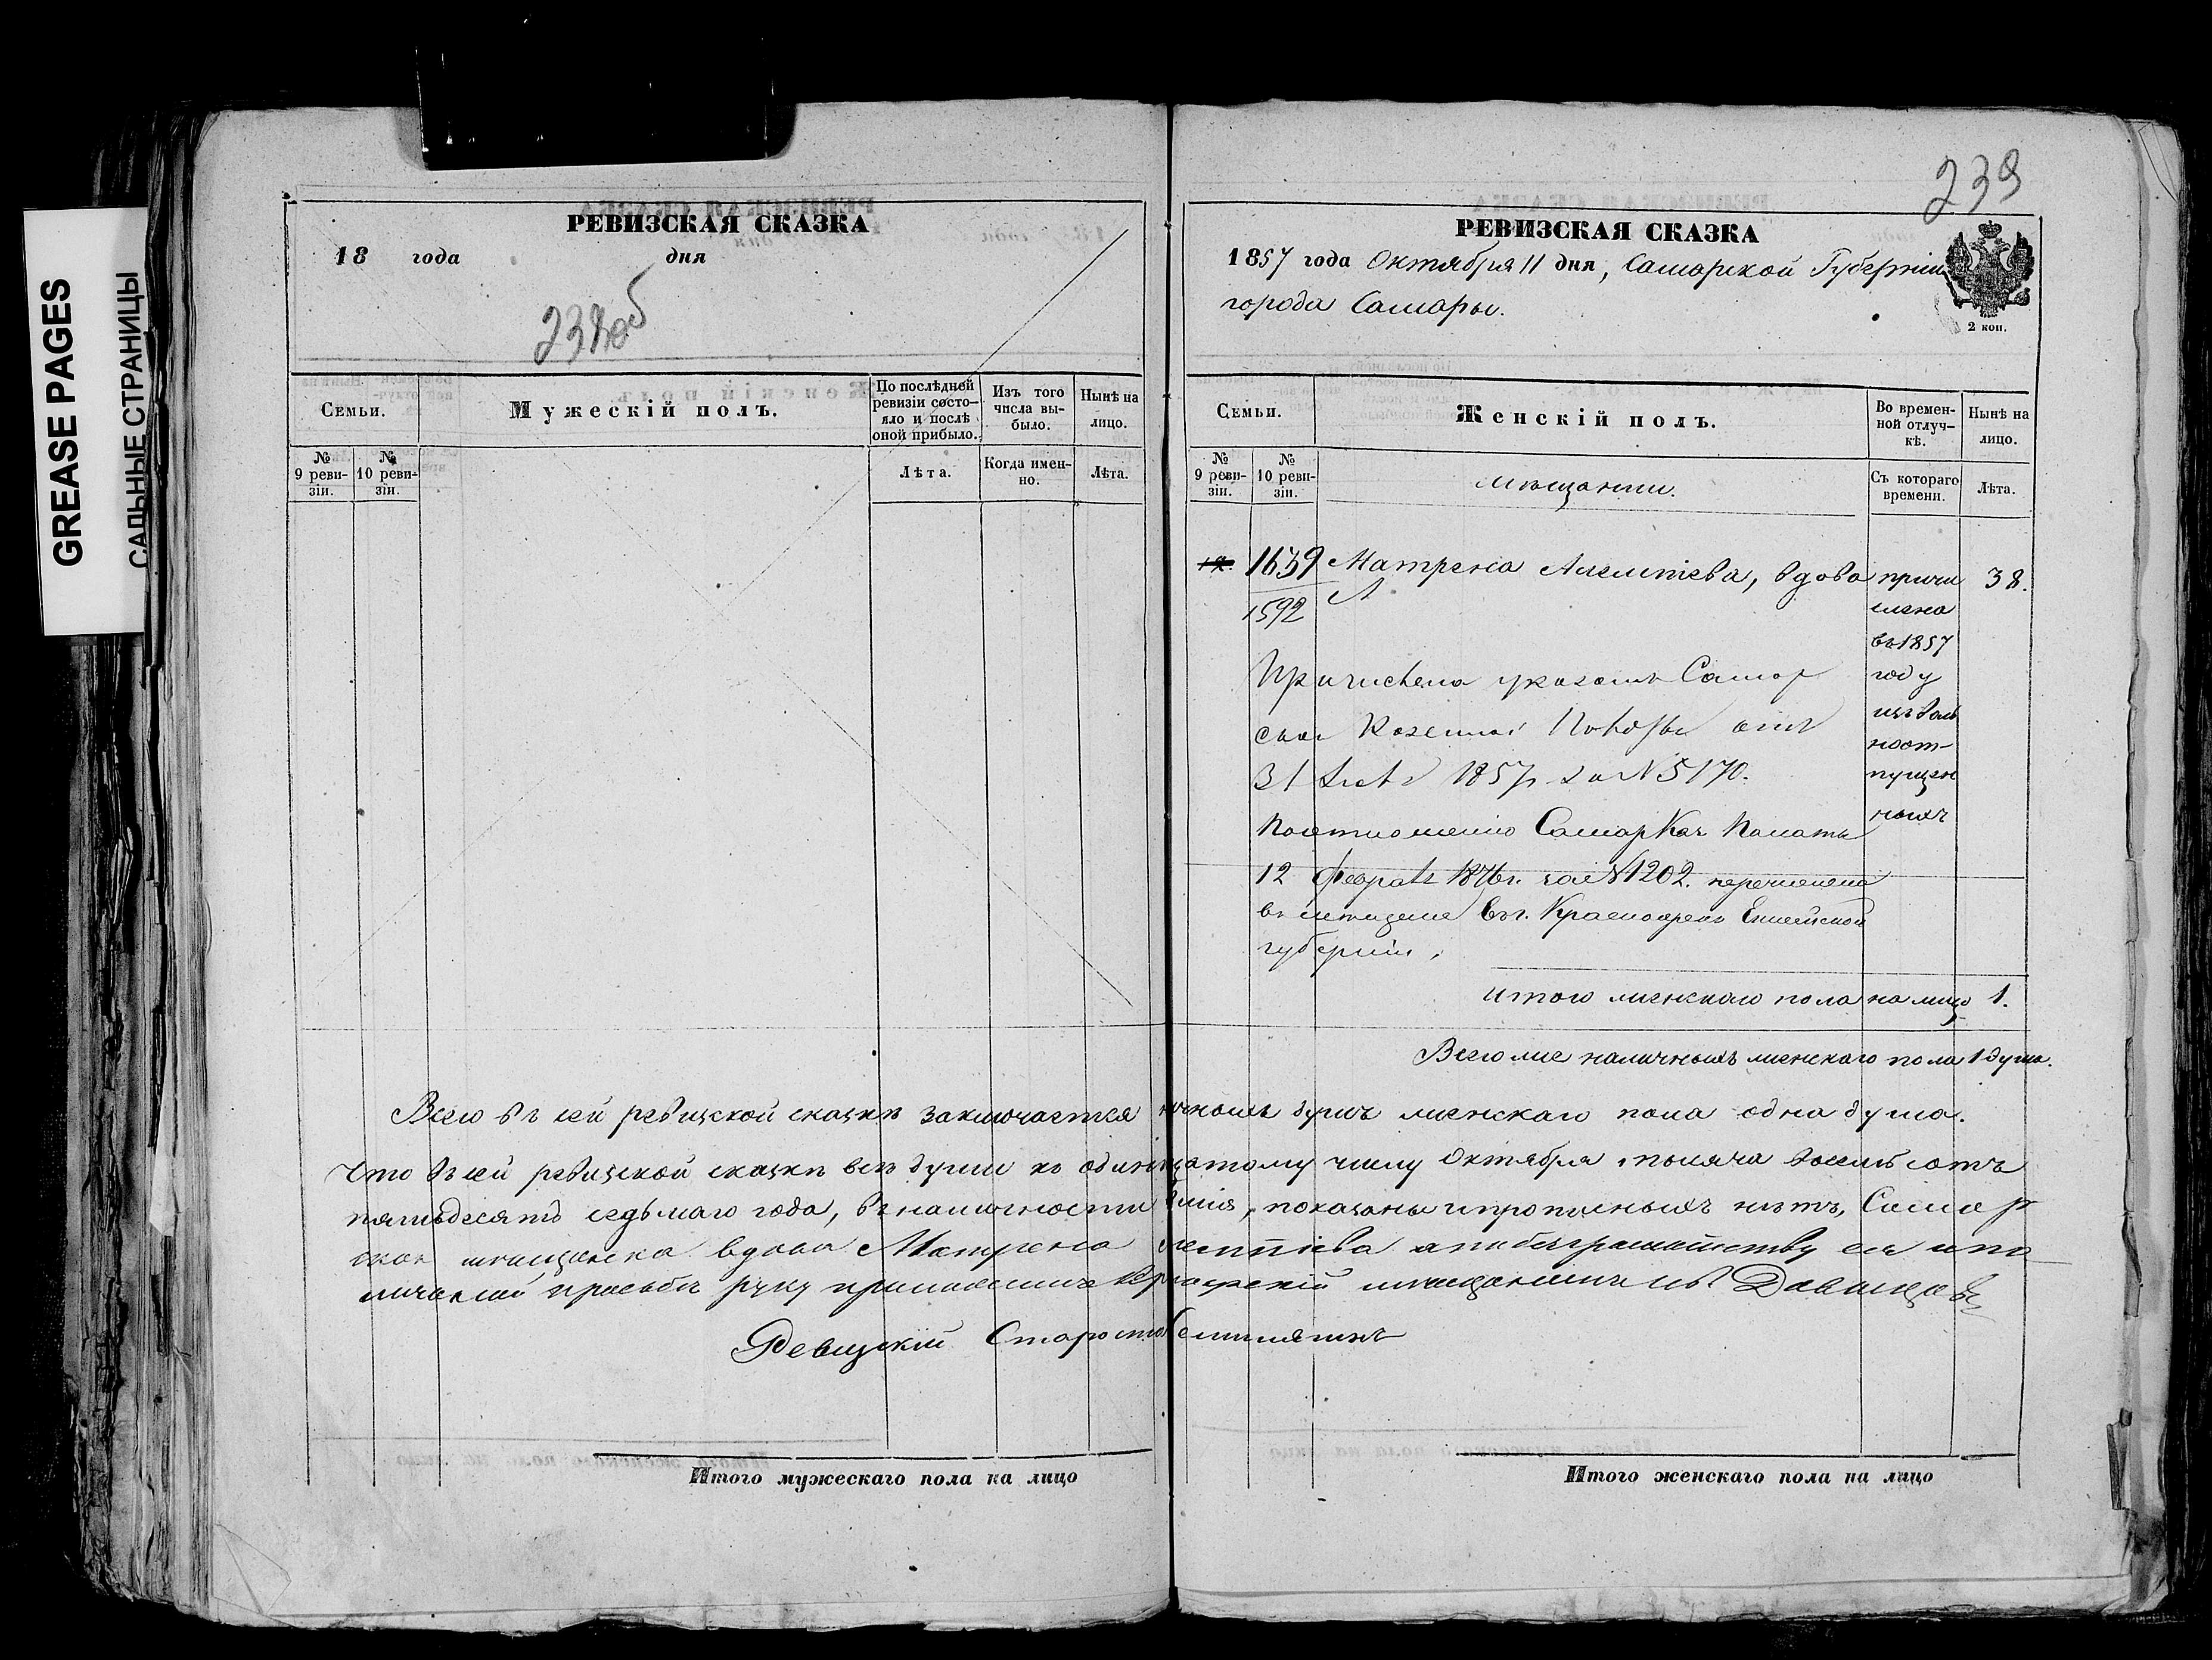 GREASE PAGES
САЛЬНЫЕ СТРАНИЦЫ
РЕВИЗСКАЯ СКАЗКА
18 года дня
238об
Семьи.
Мужескій полъ.
По послѣдней ревизіи состояло и послѣ оной прибыло.
Изъ того числа выбыло.
Нынѣ на лицо.
№ 9 ревизіи.
№ 10 ревизіи.
Лѣта.
Когда именно.
Лѣта.
239
РЕВИЗСКАЯ СКАЗКА
1857 года Октября 11 дня, Самарской Губерніи
города Самары.
2 коп.
Семьи.
Женскій полъ.
Во временной отлучкѣ.
Нынѣ на лицо.
№ 9 ревизіи.
№ 10 ревизіи.
мѣщанки.
Съ котораго времени.
Лѣта.
1639 Матрена вдова 38.
1592
причи
слена
въ 1857
году
изъ воль
ноот-
пущен
ныхъ
Причислена указомъ Самар
ской Казенной Палаты отъ
31 1857 г. за № 5170.
По отношенію Самар Каз Палаты
12 Феврал 1876 г. за № 1202. перечислена
въ мѣщане въ г. Красноярскъ Енисейской
губерніи.
Итого женскаго пола на лицо 1.
Всего же наличныхъ женскаго пола 1 душа.
Всего въ сей ревизской сказкѣ заключается душъ женскаго пола одна душа.
Что въ сей ревизской сказкѣ всѣ души къ одинадцатому числу Октября тысяча восемь сотъ
пятьдесятъ седьмаго года, въ наличности показаны и прописныхъ нѣтъ, Самар
ская мѣщанка вдова Матрена а по безграмотству ея и по
личной просьбѣ руку приложилъ мѣщанинъ
Ревизскій Староста
Итого мужескаго пола на лицо
Итого женскаго пола на лицо